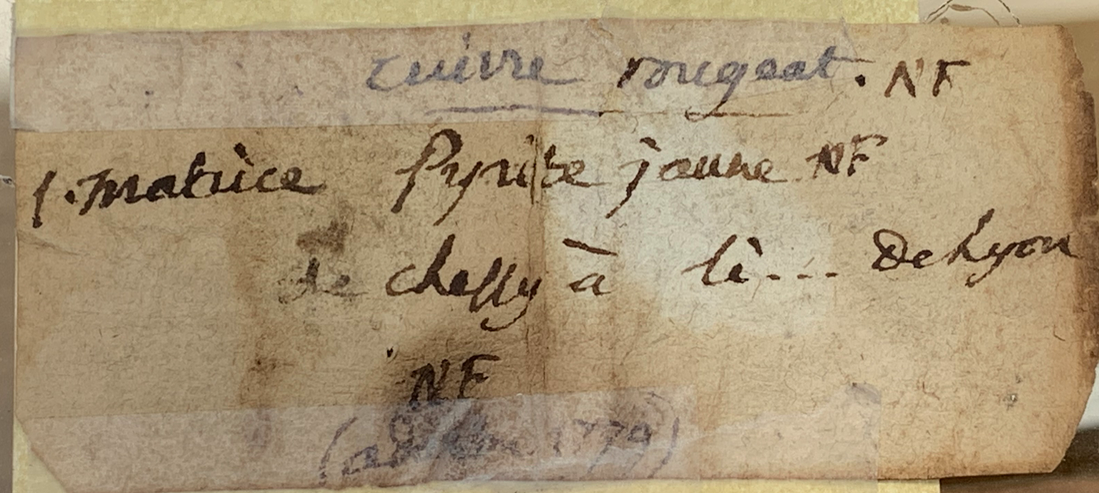 cuivre rougeat. NF
1. matrice Pyrite jaune NF
de chessy à li... De Lyon
NF
1779)